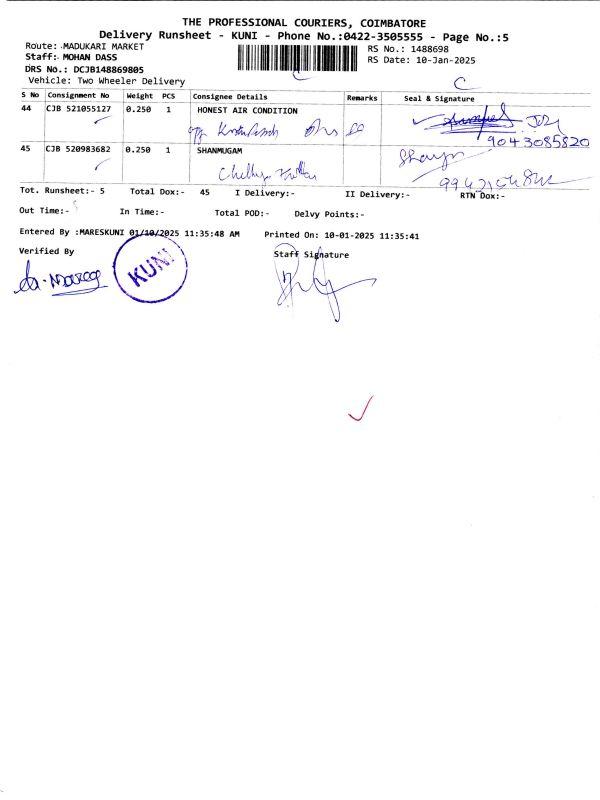 THE PROFESSIONAL COURIERS, COIMBATORE
Delivery Runsheet - KUNI - Phone No.:0422-3505555 - Page No.:5
Route: MADUKARI MARKET
RS No.: 1488698
Staff: MOHAN DASS
RS Date: 10-Jan-2025
DRS No.: DCJB148869805
Vehicle: Two Wheeler Delivery
S No Consignment No Weight PCS Consignee Details Remarks Seal & Signature
44 CJB 521055127 0.250 1 HONEST AIR CONDITION
9043085820
45 CJB 520983682 0.250 1 SHANMUGAM
Tot. Runsheet:- 5 Total Dox:- 45 I Delivery:- II Delivery:- RTN Dox:-
Out Time:- In Time:- Total POD:- Delvy Points:-
Entered By :MARESKUNI 01/10/2025 11:35:48 AM Printed On: 10-01-2025 11:35:41
Verified By Staff Signature
KUNI